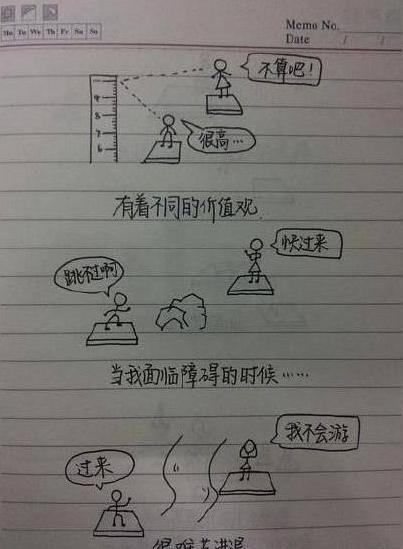 Memo No.
Mo Tu We Th Fr Sa Su
Date / /
不算吧！
很高…
有着不同的价值观
快过来
跳不过啊
当我面临障碍的时候……
我不会游
过来